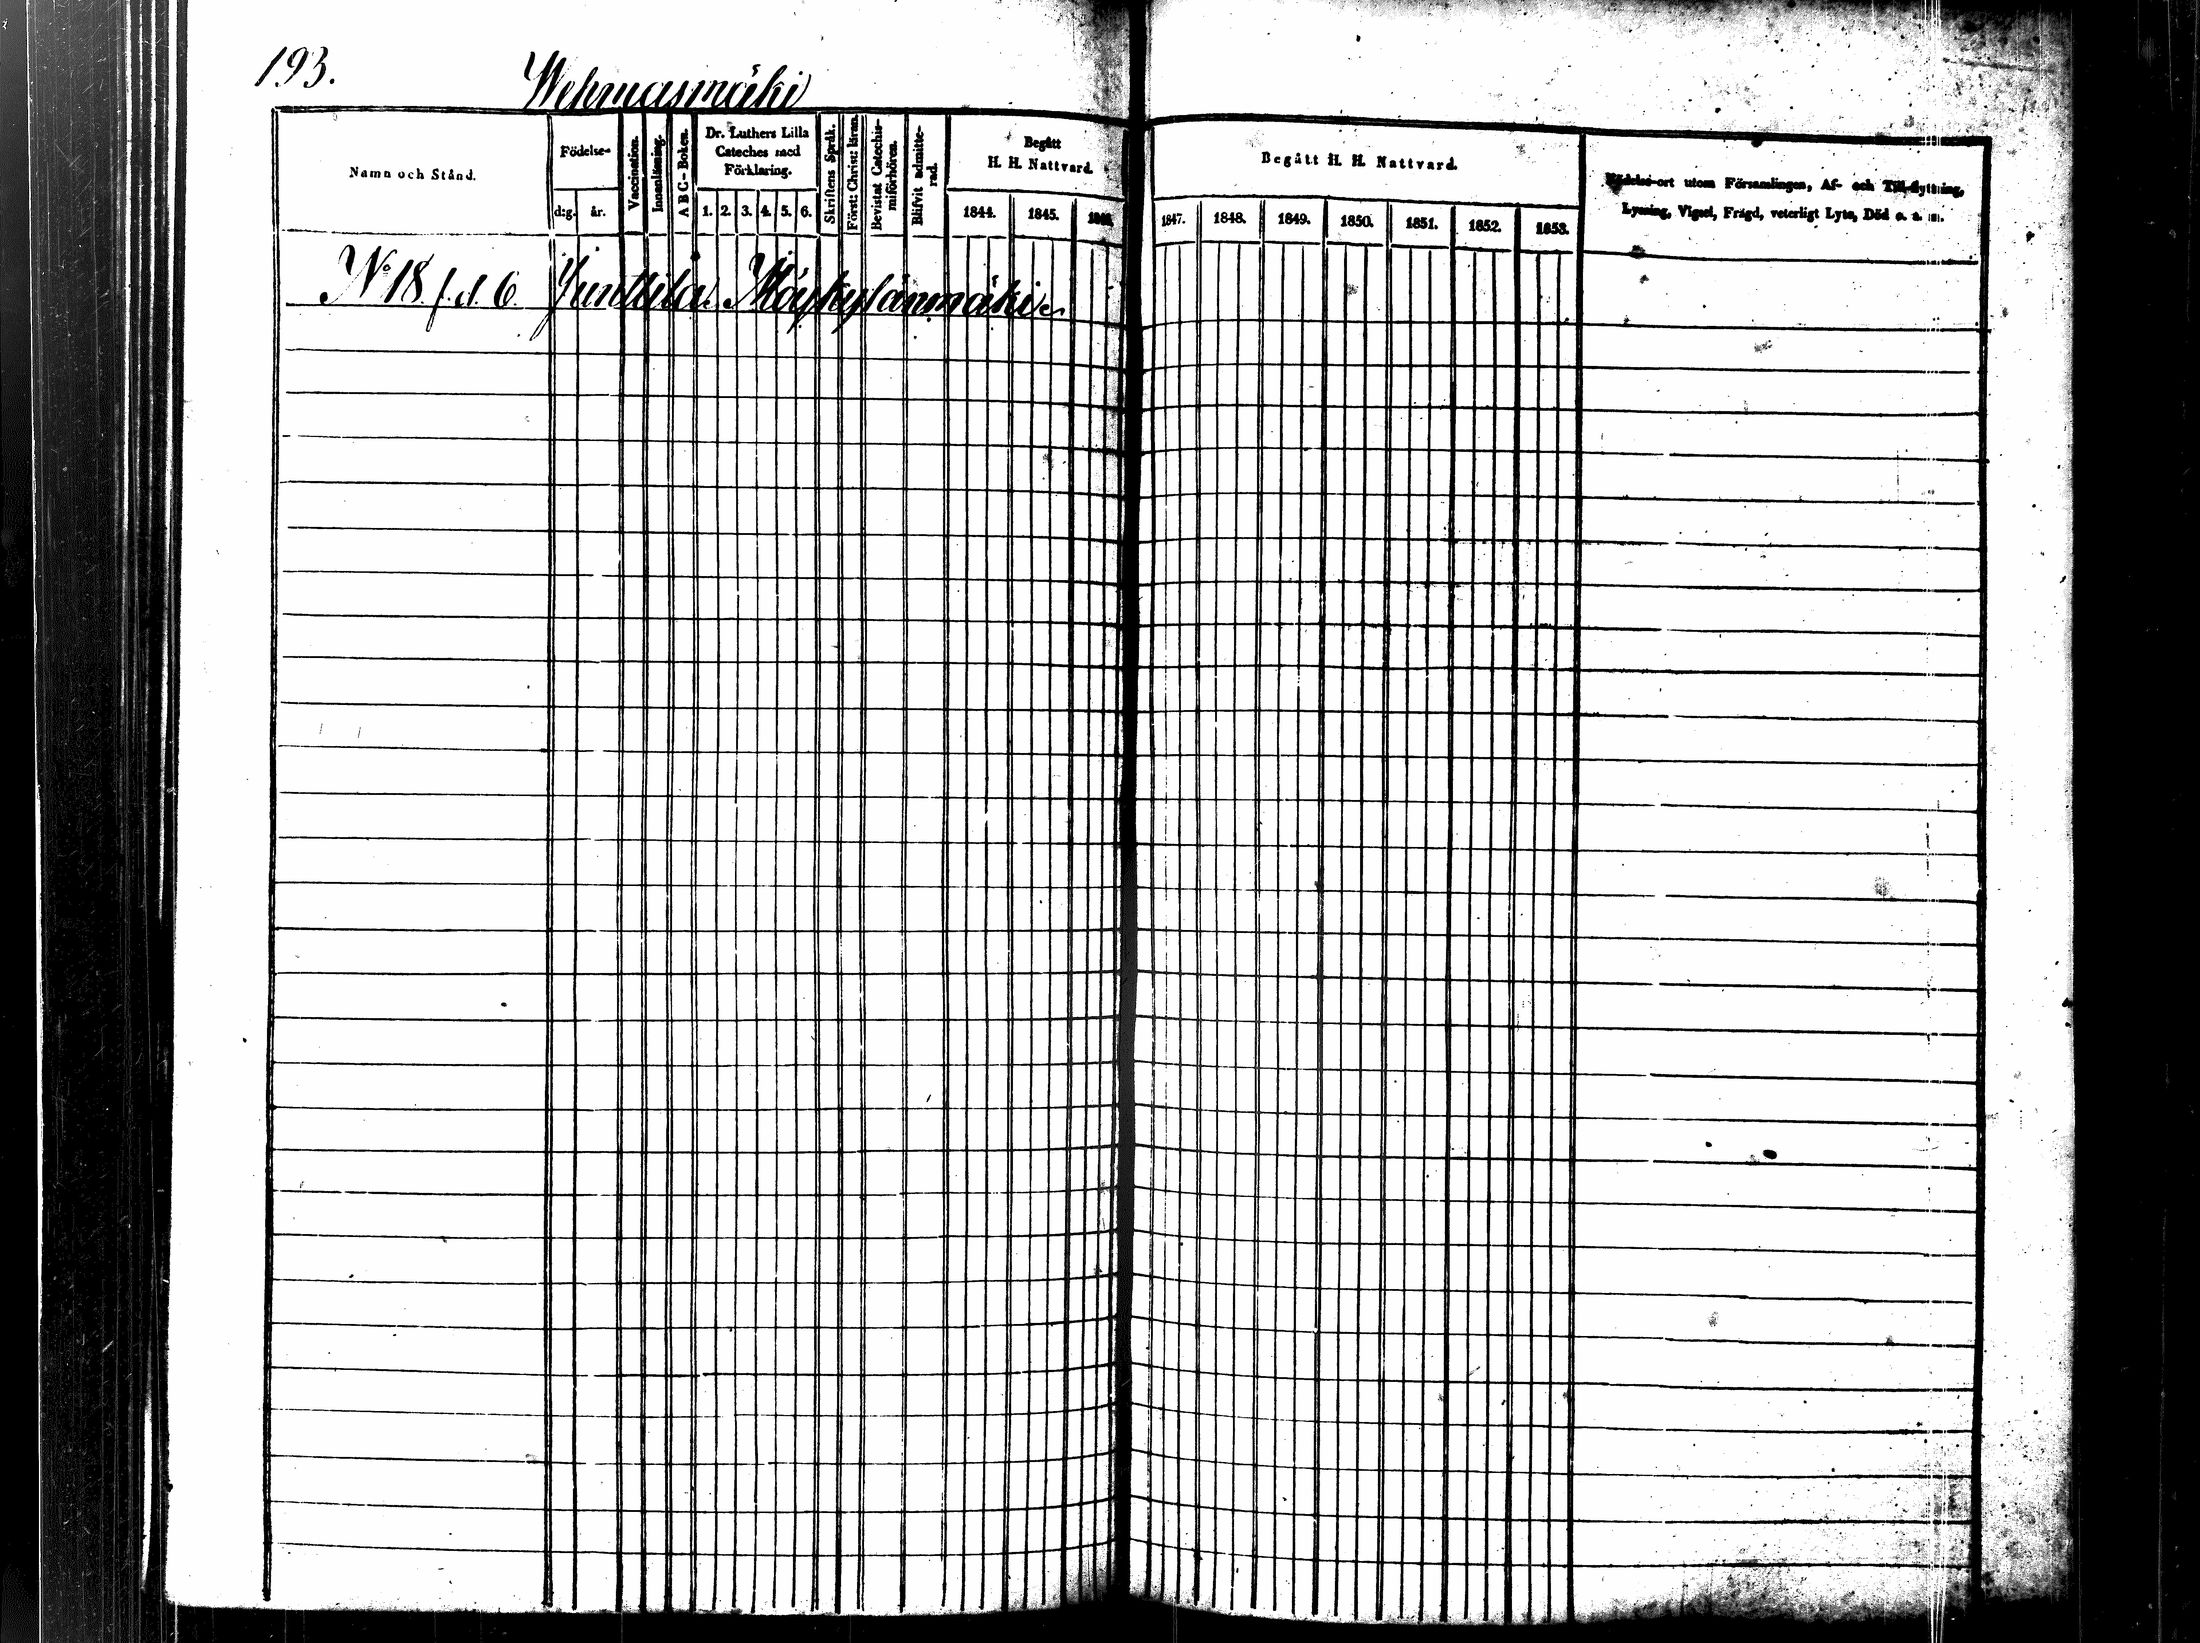 193.
Wehmasmäki
Namn och Stånd.
Födelse-
d:g. år.
Vaccination.
Innanläsning.
A B C-Boken.
Dr. Luthers Lilla
Cateches med
Förklaring.
1. 2. 3. 4. 5. 6.
Skriftens Språk.
Först: Christ: läran.
Bevistat Catechis-
miförhören.
Blifvit admitte-
rad.
Begått
H. H. Nattvard.
1844. 1845. 1846.
Begått H. H. Nattvard.
1847. 1848. 1849. 1850. 1851. 1852. 1853.
Födelse-ort utom Församlingen, Af- och Till-flyttning,
Lysning, Vigsel, Frägd, veterligt Lyte, Död o. s. m.
No 18 f. d. 6. Junttila Möykylänmäki